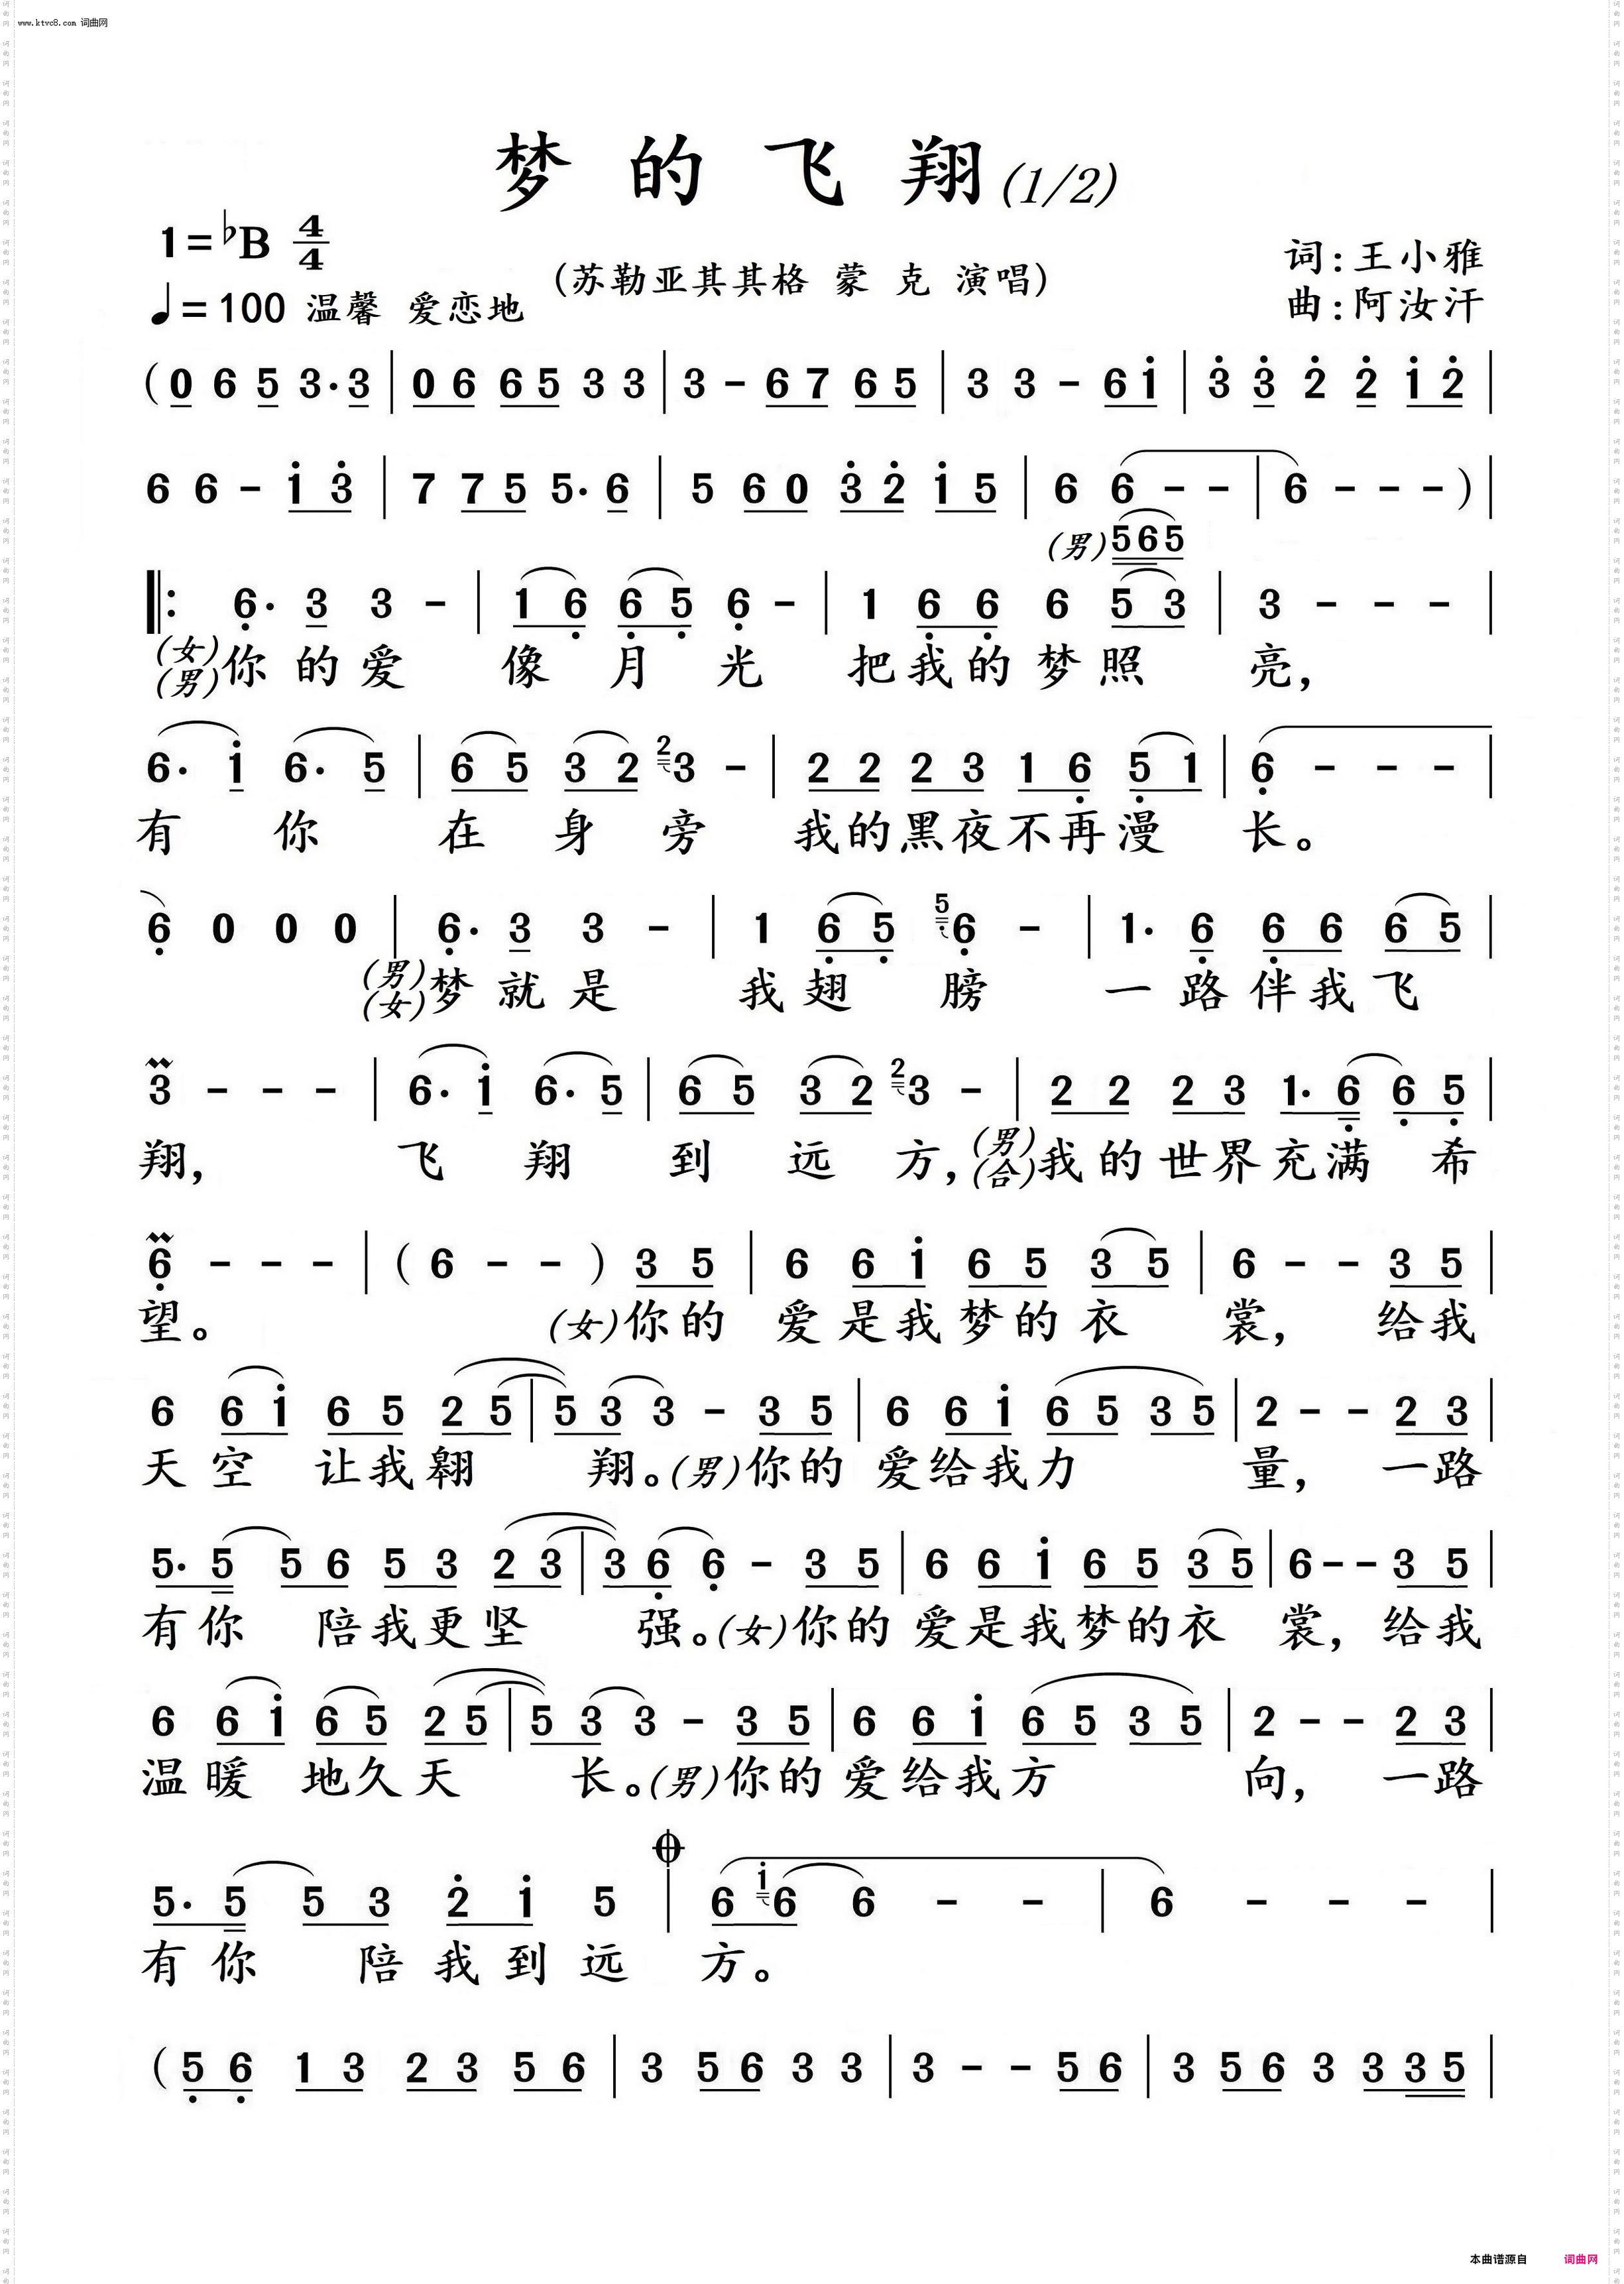 www.ktvc8.com 词曲网
梦的飞翔(1/2)
1=♭B 4/4
(苏勒亚其其格 蒙克 演唱)
词:王小雅
♩=100 温馨 爱恋地
曲:阿汝汗
(0 6 5 3·3 | 0 6 6 5 3 3 | 3 - 6 7 6 5 | 3 3 - 6 i | 3 3 2 2 i 2 |
6 6 - i 3 | 7 7 5 5·6 | 5 6 0 3 2 i 5 | 6 6 - - | 6 - - - ) |
(男) 5 6 5
‖: 6· 3 3 - | 1 6 6 5 6 - | 1 6 6 6 5 3 | 3 - - - |
(女)(男)你的爱 像月光 把我的梦照亮,
6· i 6· 5 | 6 5 3 2 2 3 - | 2 2 2 3 1 6 5 1 | 6 - - - |
有你 在身旁 我的黑夜不再漫长。
6 0 0 0 | 6· 3 3 - | 1 6 5 5 6 - | 1· 6 6 6 6 5 |
(男)(女)梦就是 我翅膀 一路伴我飞
3 - - - | 6· i 6· 5 | 6 5 3 2 2 3 - | 2 2 2 3 1· 6 6 5 |
翔, 飞翔到远方,(男)(合)我的世界充满希
6 - - - | ( 6 - - ) 3 5 | 6 6 i 6 5 3 5 | 6 - - 3 5 |
望。 (女)你的爱是我梦的衣裳, 给我
6 6 i 6 5 2 5 | 5 3 3 - 3 5 | 6 6 i 6 5 3 5 | 2 - - 2 3 |
天空让我翱翔。(男)你的爱给我力量, 一路
5· 5 5 6 5 3 2 3 | 3 6 6 - 3 5 | 6 6 i 6 5 3 5 | 6 - - 3 5 |
有你陪我更坚强。(女)你的爱是我梦的衣裳, 给我
6 6 i 6 5 2 5 | 5 3 3 - 3 5 | 6 6 i 6 5 3 5 | 2 - - 2 3 |
温暖地久天长。(男)你的爱给我方向, 一路
5· 5 5 3 2 i 5 | 6 i 6 6 - - | 6 - - - |
有你陪我到远方。
( 5 6 1 3 2 3 5 6 | 3 5 6 3 3 | 3 - - 5 6 | 3 5 6 3 3 3 5 |
本曲谱源自 词曲网